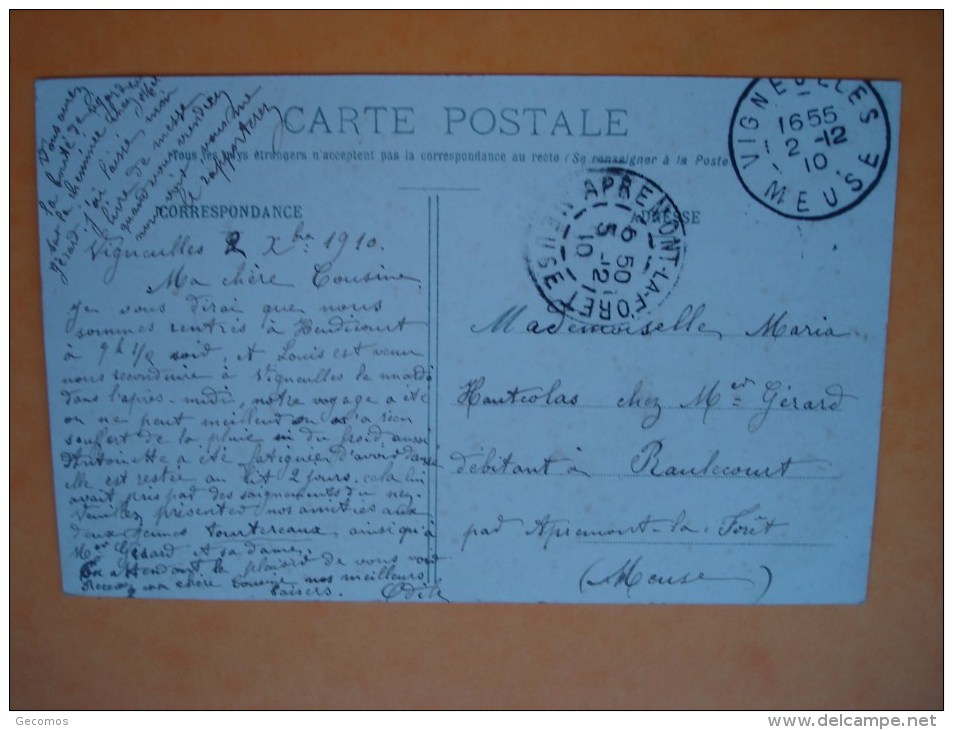 Vous aurez
la bonté de regarder
sur la cheminée chez
Gérard j'ai laissé mon
livre de messe
quand vous viendrez
nous voir vous me
le rapporterez
CARTE POSTALE
Tous les pays étrangers n'acceptent pas la correspondance au recto (Se renseigner à la Poste
CORRESPONDANCE
ADRESSE
VIGNEULLES
1655
2 -12
10
MEUSE
APREMONT-LA-FORET
6 50
5 -12
10
MEUSE
Vigneulles 2 Xbre 1910.
Ma chère Cousine
Je vous dirai que nous
sommes rentrés à Heudicourt
à 9h 1/2 soir, et Louis est venu
nous reconduire à Vigneulles le mardi
dans l'après-midi, notre voyage a été
on ne peut meilleur on n'a rien
souffert de la pluie ni du froid, aussi
Antoinette a été fatiguée d'avoir dansé
elle est restée au lit 2 jours. cela lui
avait pris par des saignements du nez.
Veuillez présenter nos amitiés aux
deux jeunes tourtereaux ainsi qu'à
Mr Gérard et sa dame.
En attendant le plaisir de vous voir
Recevez ma chère Cousine nos meilleurs
baisers. Odile
Mademoiselle Maria
Hautcolas chez Mer Gérard
débitant à Raulecourt
par Apremont-la-Forêt
(Meuse)
Gecomos
www.delcampe.net